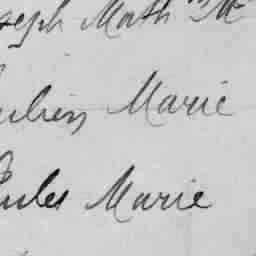 seph Math Mc
ulien Marie
Jules Marie